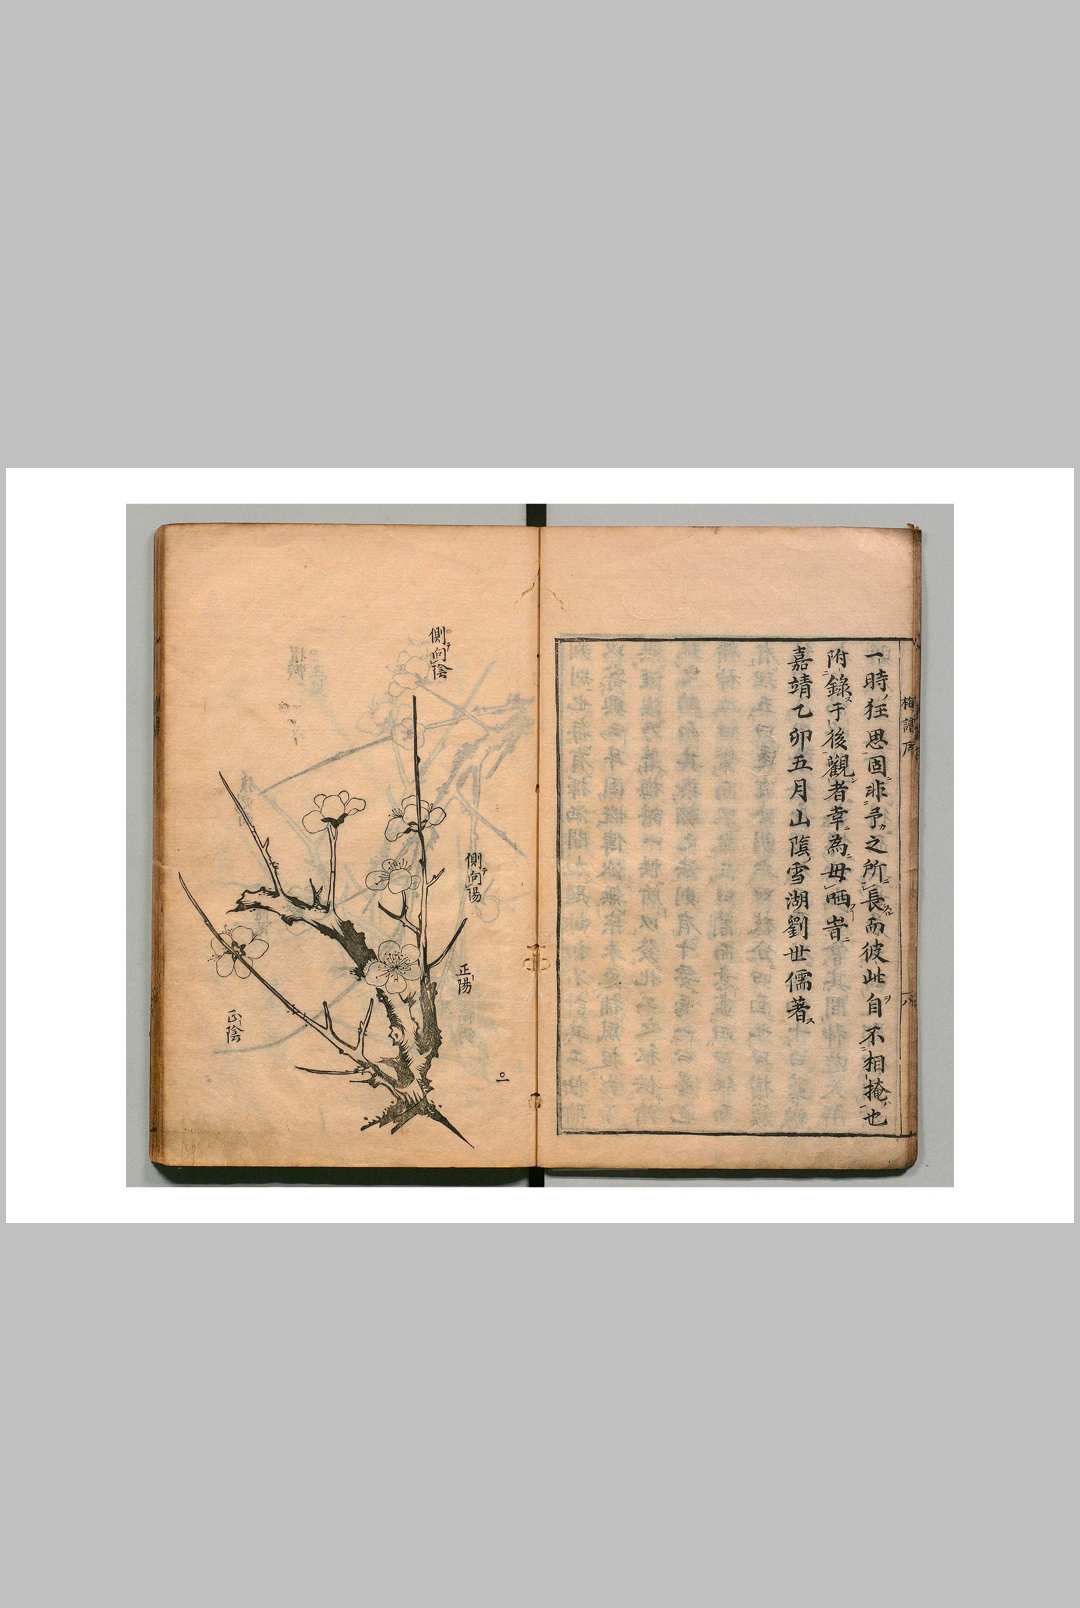 一時狂思固非予之所長而彼此自不相掩也
附錄于後觀者幸為毋哂
嘉靖乙卯五月山陰雪湖劉世儒著
梅譜序
八
側向陰
側向陽
正陽
正陰